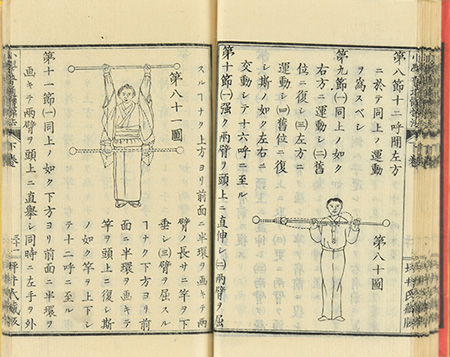 第八節十二呼間左方
ニ於テ同上ノ運動
ヲ爲スベシ
第九節(一)同上ノ如ク
右方ニ運動シ(二)舊
位ニ復シ(三)左方ニ
運動シ(四)舊位ニ復
シ斯ノ如ク左右ニ
交動シテ十六呼ニ至ル
第十節(一)强ク兩臂ヲ頭上ニ直伸シ(二)兩臂ヲ屈
第八十圖
スルヿナク上方ヨリ前面ニ半環ヲ画キテ兩
臂ノ長サニ竿ヲ下
垂シ(三)臂ヲ屈スル
ヿナク下方ヨリ前
面ニ半環ヲ画キテ
竿ヲ頭上ニ復シ斯
ノ如ク竿ヲ上下シ
テ十二呼ニ至ル
第八十一圖
第十一節(一)同上ノ如ク下方ヨリ前面ニ半環ヲ
画キテ兩臂ヲ頭上ニ直擧シ同時ニ左手ヲ外
下卷
坪井氏藏版